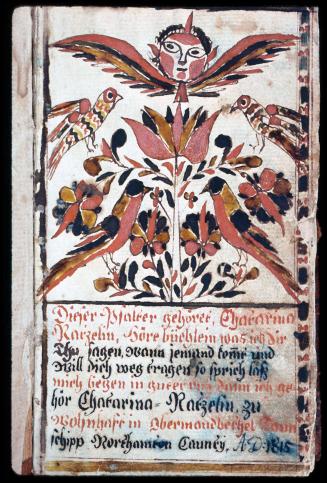 Dieser Psalter gehöret, Chatarina
Ratzelin, Höre büchlein was ich dir
Thu sagen, Wann jemand kome und
Will dich weg tragen so sprich laß
mich ligen in guter ruh dann ich ge-
hör Chatarina Ratzelin, zu
Wohnhaft in Obermaundbethel Taun
schipp Northamton Caunty, A:D: 1815